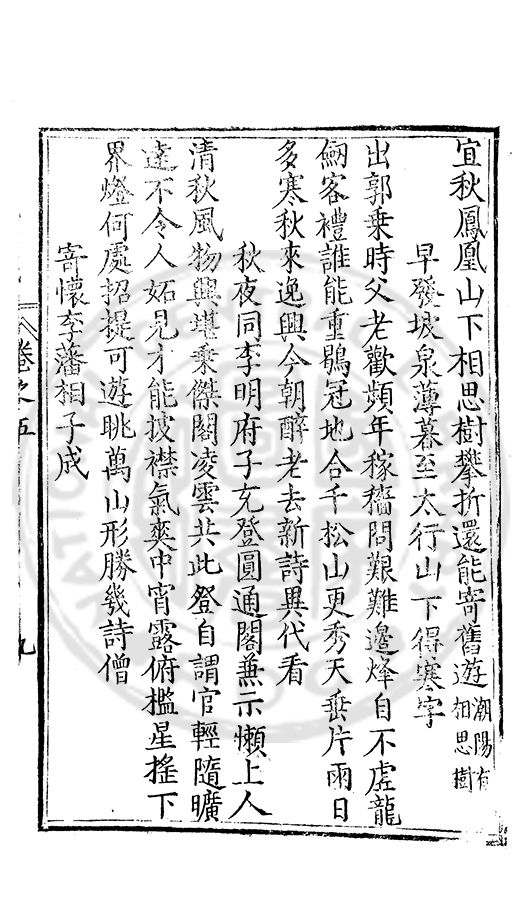 宜秋鳳凰山下相思樹攀折還能寄舊遊潮陽有相思樹
早發坡泉薄暮至太行山下得寒字
出郭乗時父老歡頻年稼穡問艱難邊烽自不虛龍
劒客禮誰能重鶡冠地合千松山更秀天垂片雨日
多寒秋來逸興今朝醉老去新詩異代看
秋夜同李明府子充登圓通閣兼示懶上人
清秋風物興堪乗傑閣凌雲共此登自謂官輕隨曠
逺不令人妬見才能披襟氣爽中宵露俯檻星揺下
界燈何處招提可遊眺萬山形勝幾詩僧
寄懷李藩相子成
卷之五
九